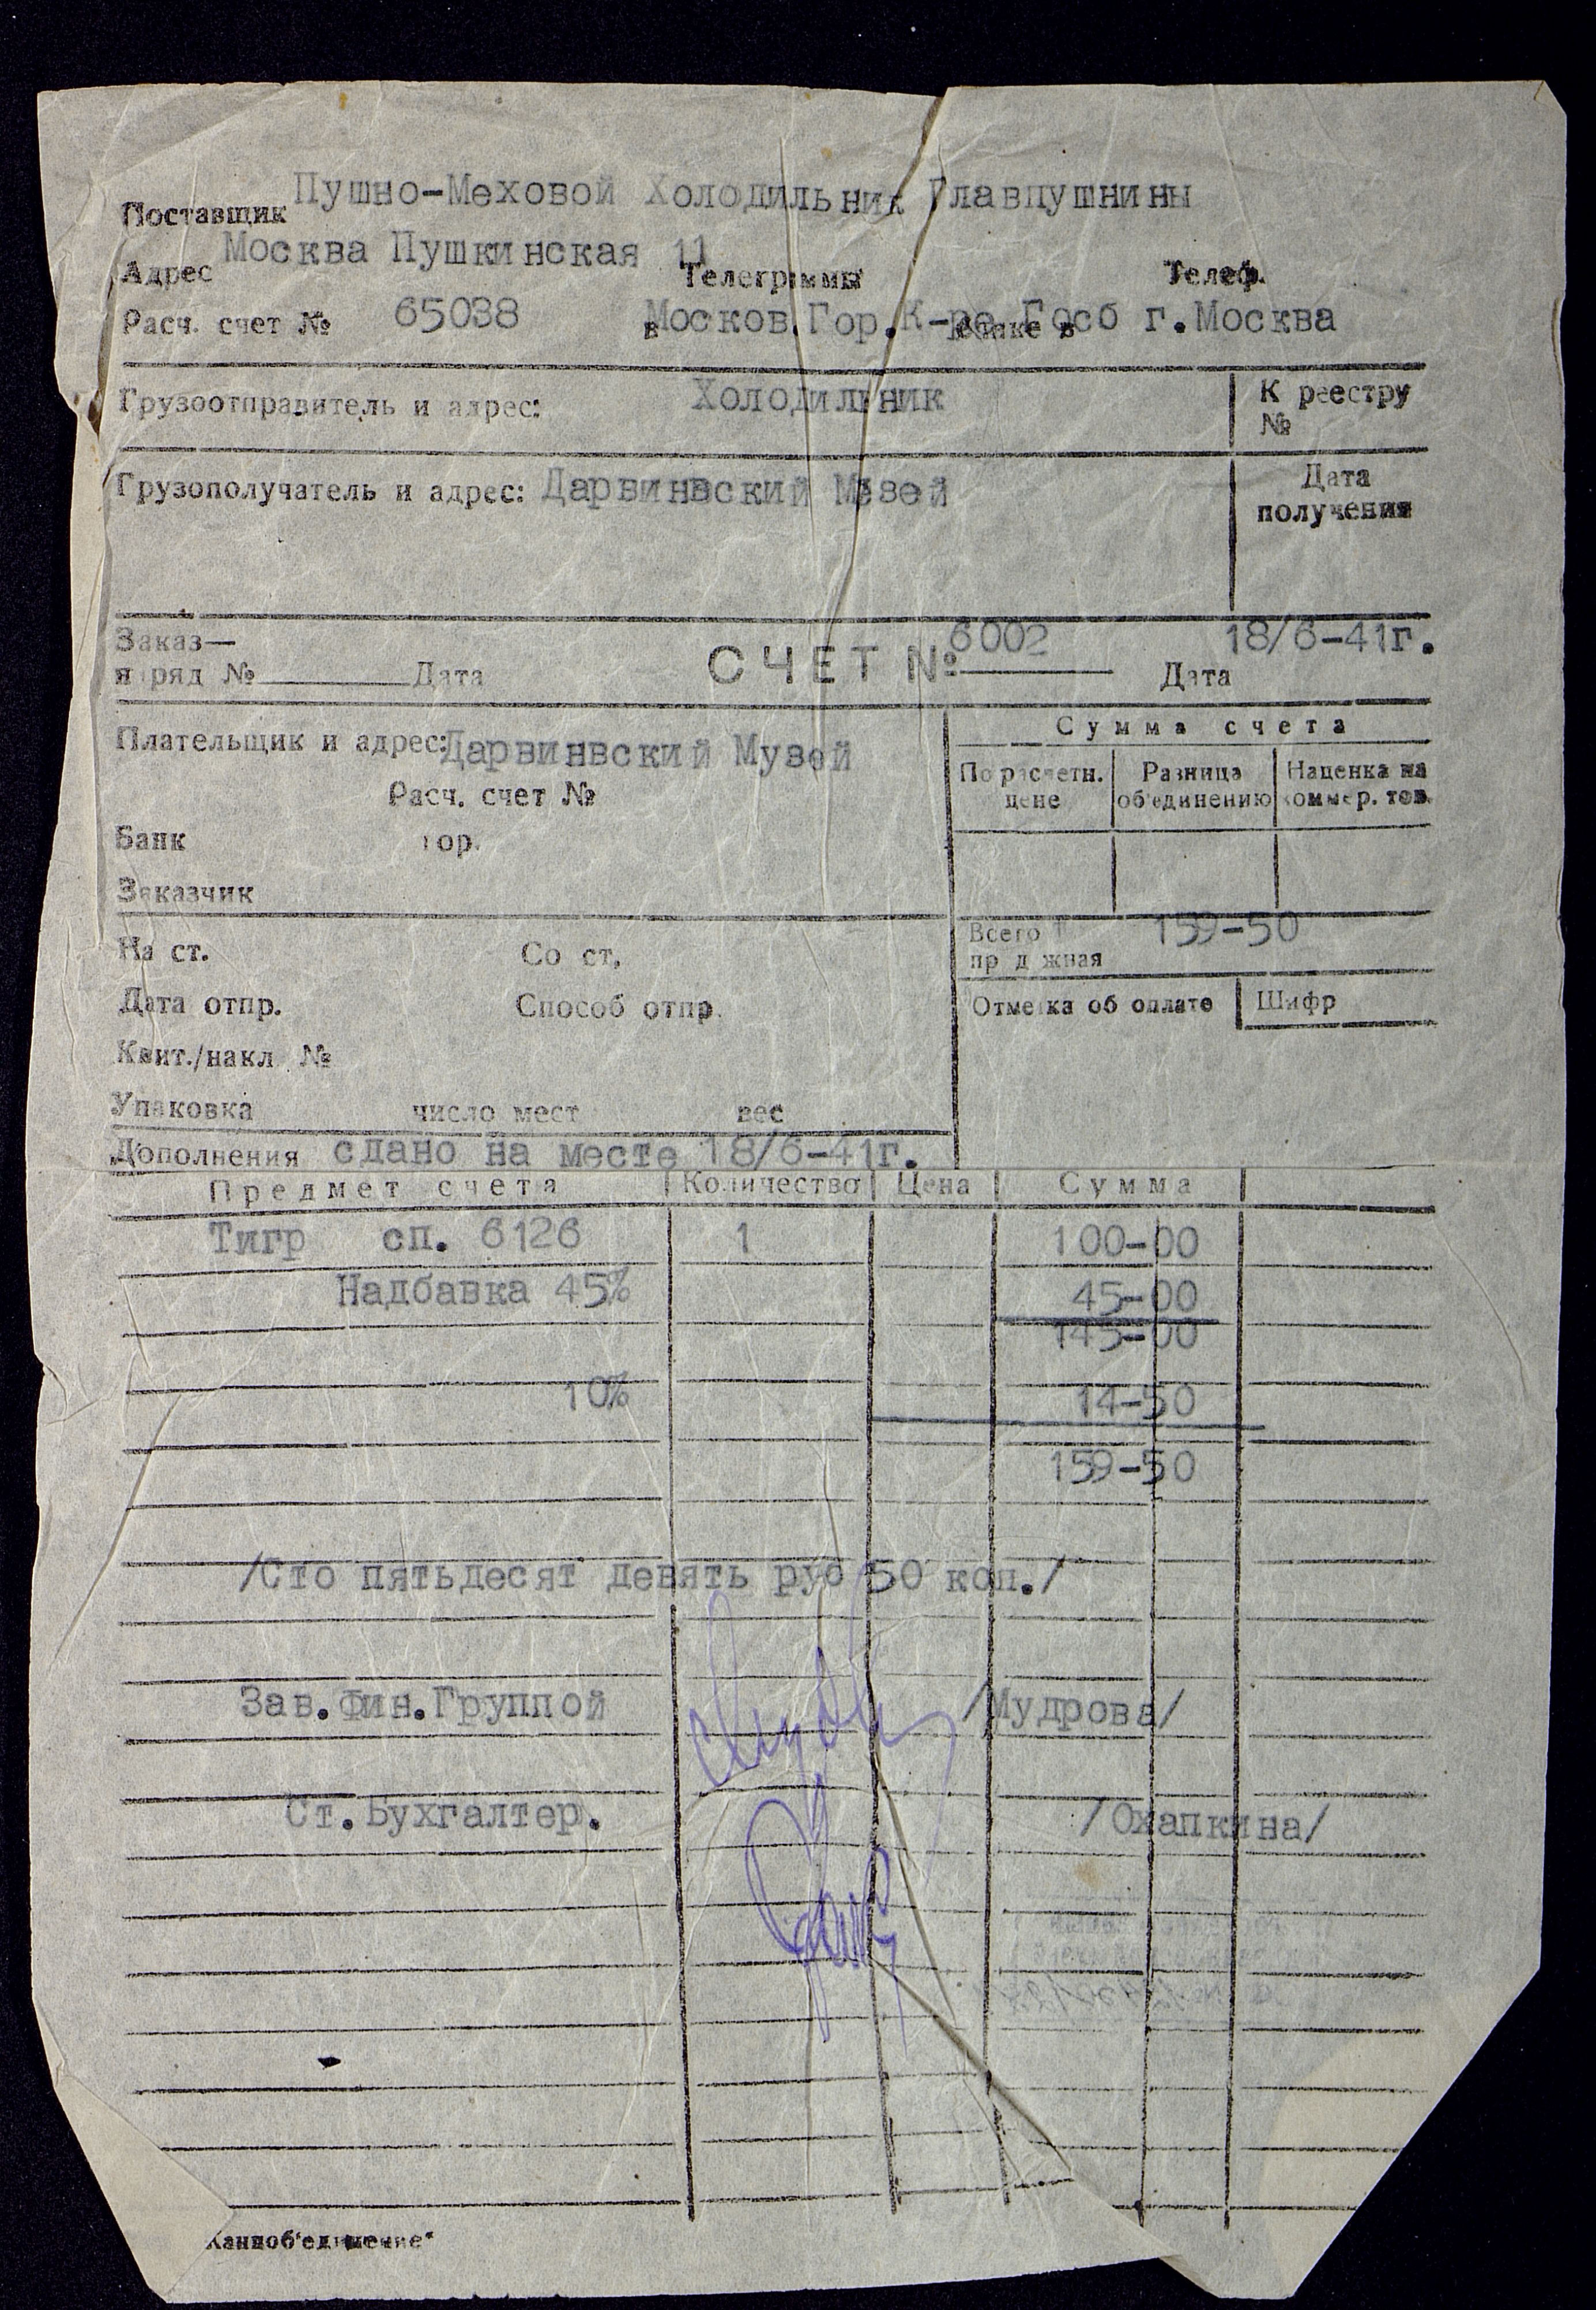 Пушно-Меховой Холодильник Главпушнины
Поставщик
Москва Пушкинская 11
Адрес Телеграммы Телеф.
Расч. счет № 65038 в Москов.Гор.К-ре Госб г.Москва
Грузоотправитель и адрес: Холодильник К реестру
№
Грузополучатель и адрес: Дарвинвский Музей Дата
получения
Заказ—
наряд № Дата СЧЕТ № 6002 Дата 18/6-41г.
Плательщик и адрес: Дарвинвский Музей Сумма счета
Расч. счет № По расчетн. цене Разница об'единению Наценка на коммер. тов.
Банк гор.
Заказчик
Всего 159-50
На ст. Со ст.
Дата отпр. Способ отпр. Отметка об оплате Шифр
Квит./накл. №
Упаковка число мест вес
Дополнения сдано на месте 18/6-41г.
Предмет счета Количество Цена Сумма
Тигр сп. 6126 1 100-00
Надбавка 45% 45-00
145-00
10% 14-50
159-50
/Сто пятьдесят девять руб 50 коп./
Зав.Фин.Группой /Мудрова/
Ст.Бухгалтер. /Охапкина/
Канцоб'единение"